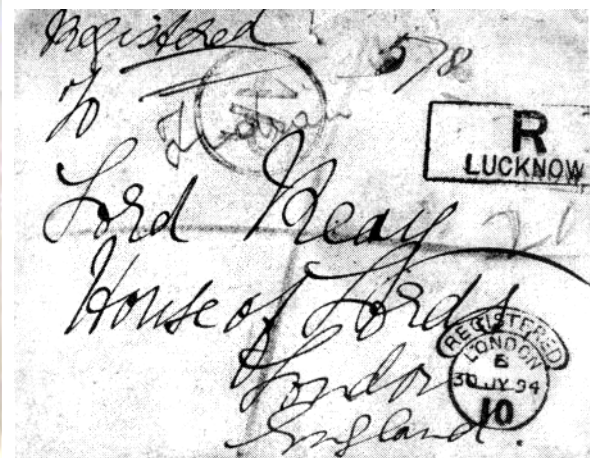 Registered
5/8
To
R
LUCKNOW
Lord Reay
House of Lords
London
England.
REGISTERED
LONDON
30 JY 94
10